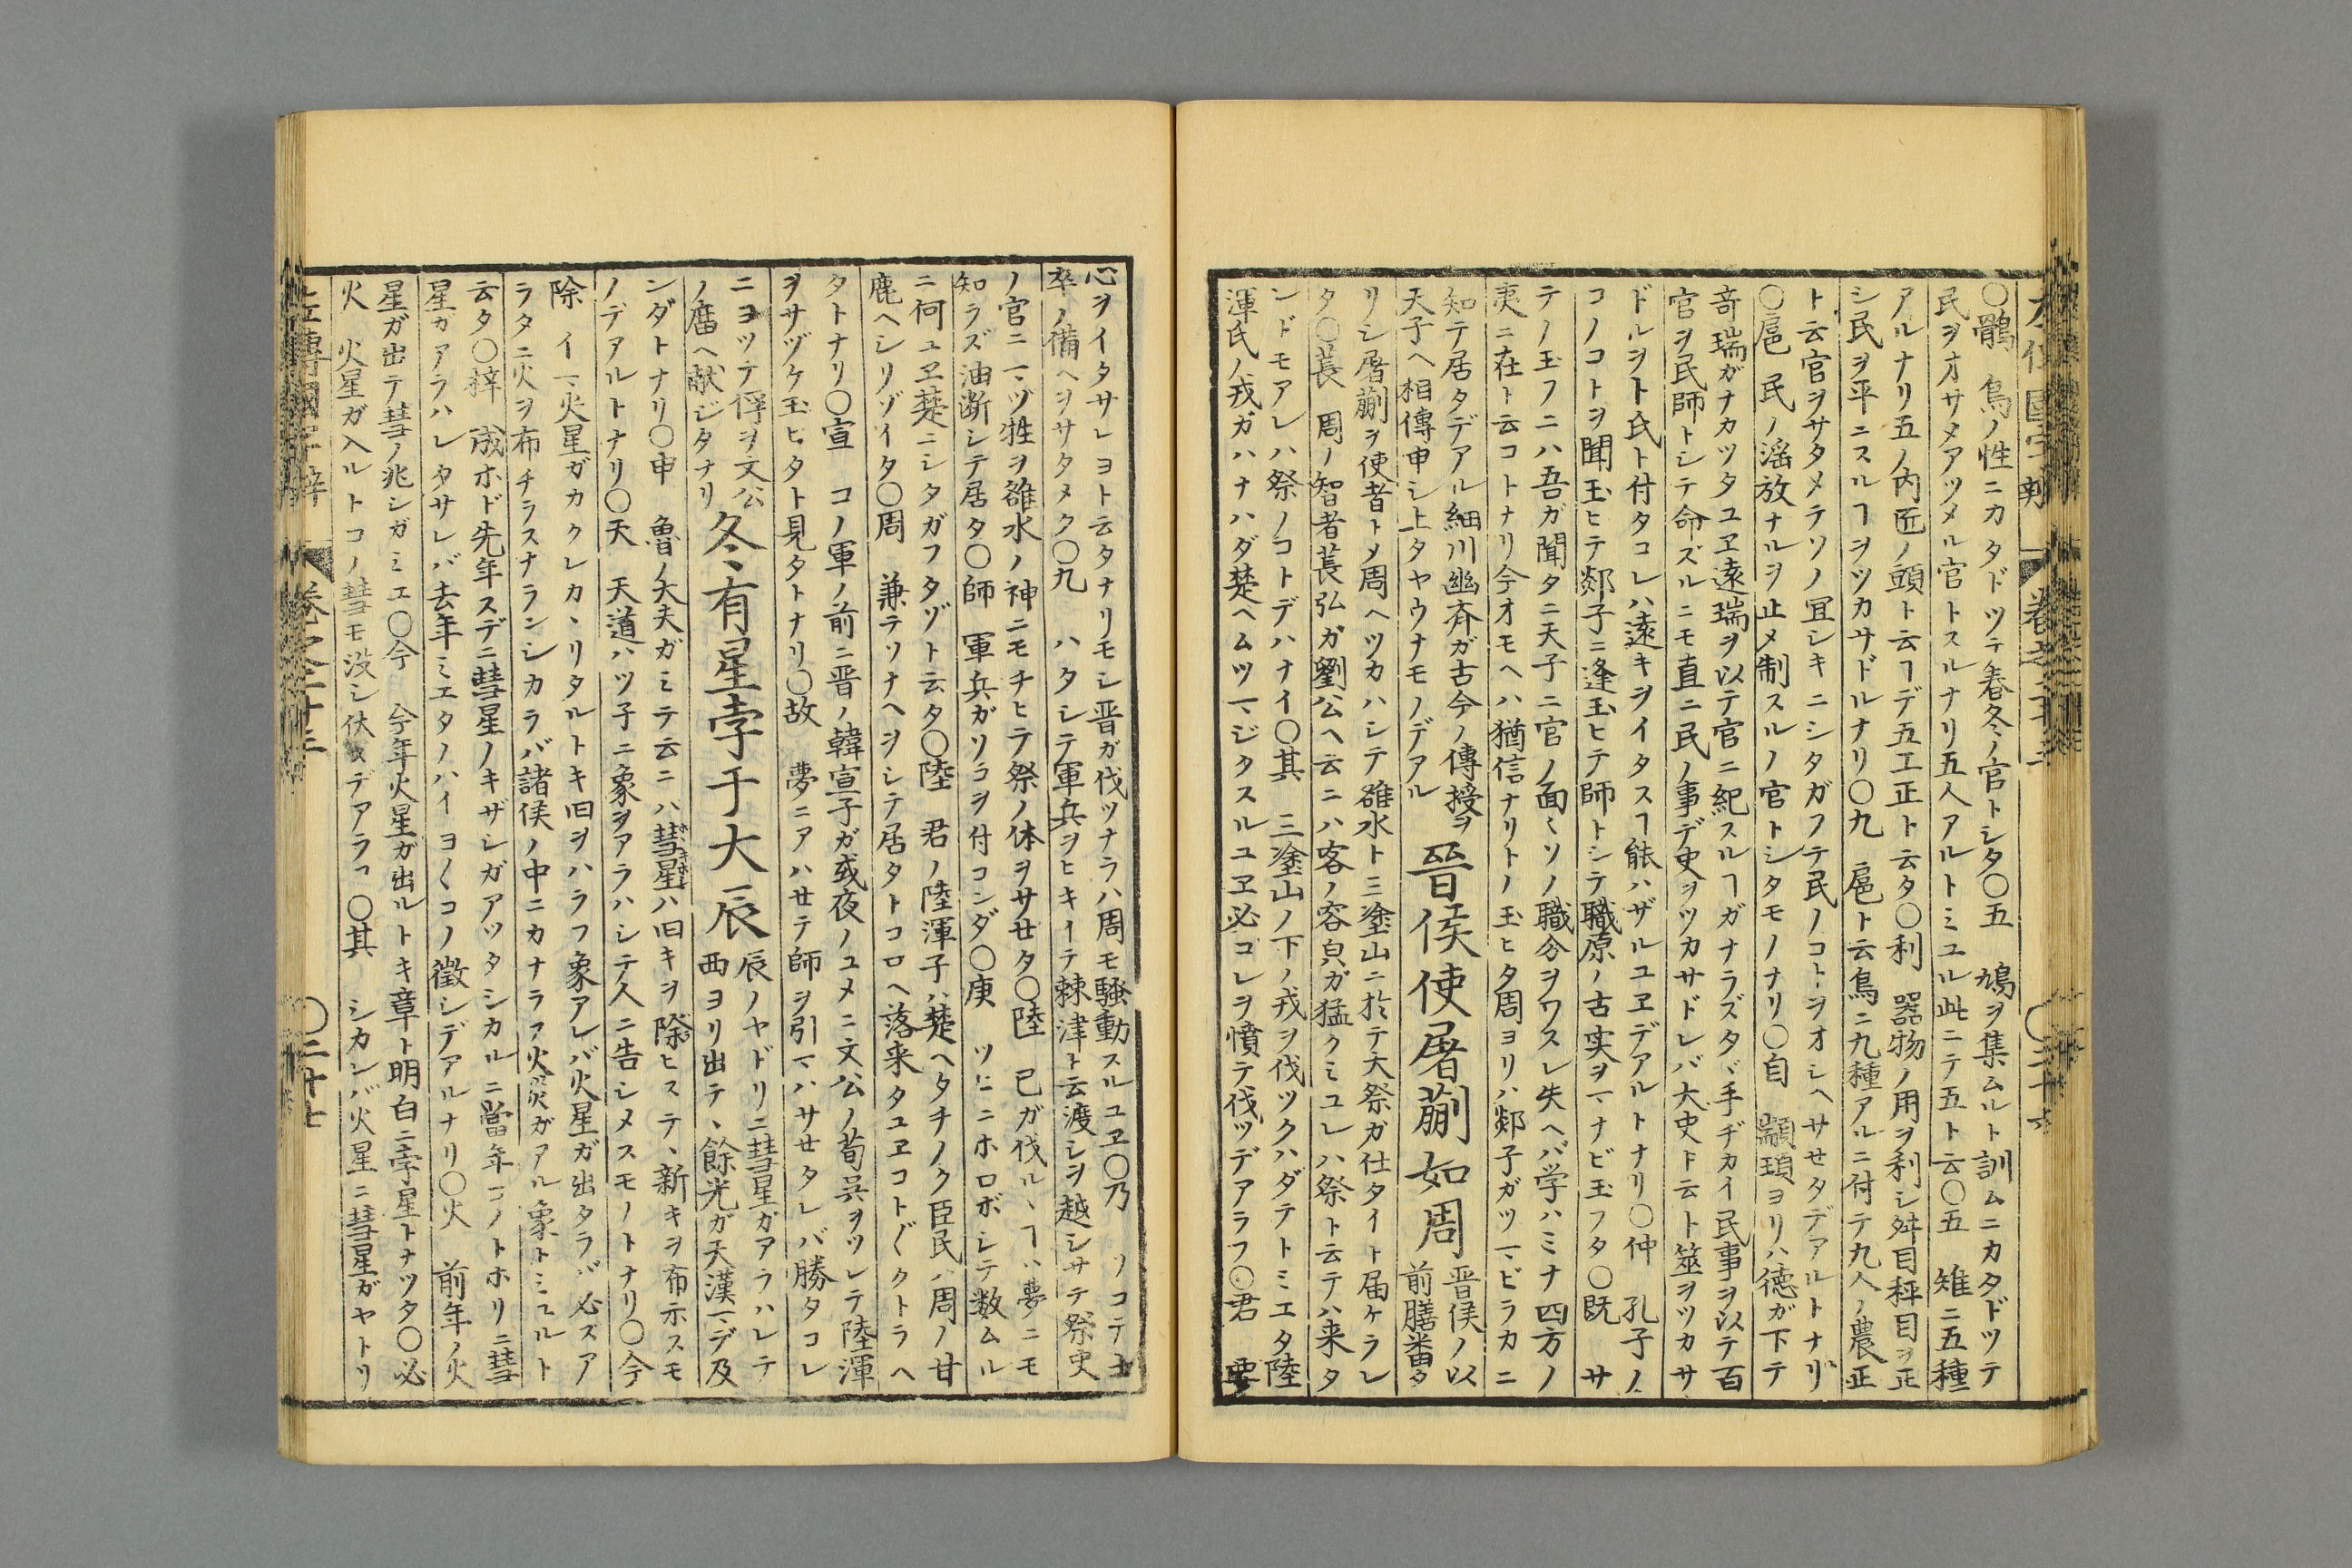 〇鶻　鳥ノ性ニカタドツテ春冬ノ官トシタ〇五　鳩ヲ集ムルト訓ムニカタドツテ
民ヲオサメアツメル官トスルナリ五人アルトミユル此ニテ五ト云〇五　雉ニ五種
アルナリ五ノ内匠ノ頭ト云ヿデ五工正ト云タ〇利　器物ノ用ヲ利シ舛目秤目ヲ正
シ民ヲ平ニスルヿヲツカサドルナリ〇九　扈ト云鳥ニ九種アルニ付テ九人ノ農正
ト云官ヲサタメテソノ冝シキニシタガフテ民ノコトヲオシヘサセタデアルトナリ
〇扈　民ノ滛放ナルヲ止メ制スルノ官トシタモノナリ〇自　顓頊ヨリハ徳ガ下テ
竒瑞ガナカツタユヱ遠瑞ヲ以テ官ニ紀スルヿガナラズタヾ手ヂカイ民事ヲ以テ百
官ヲ民師トシテ命ズルニモ直ニ民ノ事デ史ヲツカサドレバ大史ト云ト筮ヲツカサ
ドルヲト氏ト付タコレハ遠キヲイタスヿ能ハザルユヱデアルトナリ〇仲　孔子ノ
コノコトヲ聞玉ヒテ郯子ニ逢玉ヒテ師トシテ職原ノ古実ヲマナビ玉フタ〇既　サ
テノ玉フニハ吾ガ聞タニ天子ニ官ノ面〻ソノ職分ヲワスレ失ヘバ学ハミナ四方ノ
夷ニ在ト云コトナリ今オモヘハ猶信ナリトノ玉ヒタ周ヨリハ郯子ガツマビラカニ
知テ居タデアル細川幽斉ガ古今ノ傳授ヲ
天子ヘ相傳申シ上タヤウナモノデアル
晉侯使屠蒯如周
晋侯ノ以
前膳番タ
リシ屠蒯ヲ使者トメ周ヘツカハシテ雒水ト三塗山ニ於テ大祭ガ仕タイト届ケラレ
タ〇萇　周ノ智者萇弘ガ劉公ヘ云ニハ客ノ容皃ガ猛クミユレハ祭ト云テハ来タ
ンドモアレハ祭ノコトデハナイ〇其　三塗山ノ下ノ戎ヲ伐ツクハダテトミエタ陸
渾氏ノ戎ガハナハダ楚ヘムツマジクスルユヱ必コレヲ憤テ伐ツデアラフ〇君　要
心ヲイタサレヨト云タナリモシ晋ガ伐ツナラハ周モ騒動スルユヱ〇乃　ソコテ王
卒ノ備ヘヲサタメク〇九　ハタシテ軍兵ヲヒキイテ棘津ト云渡シヲ越シサテ祭史
ノ官ニマヅ牲ヲ雒水ノ神ニモチヒラ祭ノ体ヲサセタ〇陸　已ガ伐ルヽヿハ夢ニモ
知ラズ油断シテ居タ〇師　軍兵ガソコヲ付コンダ〇庚　ツヒニホロボシテ数ムル
ニ何ユヱ楚ニシタガフタゾト云タ〇陸　君ノ陸渾子ハ楚ヘタチノク臣民ハ周ノ甘
鹿ヘシリゾイタ〇周　兼テソナヘヲシテ居タトコロヘ落来タユヱコトゞクトラヘ
タトナリ〇宣　コノ軍ノ前ニ晋ノ韓宣子ガ或夜ノユメニ文公ノ荀呉ヲツレテ陸渾
ヲサヅケ玉ヒタト見タトナリ〇故　夢ニアハセテ師ヲ引マハサセタレバ勝タコレ
ニヨツテ俘ヲ文公
ノ庿ヘ献ジタナリ
冬有星孛于大辰
辰ノヤドリニ彗星ガアラハレテ
西ヨリ出テヽ餘光ガ天漢マデ及
ンダトナリ〇申　魯ノ大夫ガミテ云ニハ彗星ハ旧キヲ除ヒステヽ新キヲ布示スモ
ノデアルトナリ〇天　天道ハツ子ニ象ヲアラハシテ人ニ告シメスモノトナリ〇今
除　イマ火星ガカクレカヽリタルトキ旧ヲハラフ象アレバ火星ガ出タラバ必ズア
ラタニ火ヲ布チラスナランシカラバ諸侯ノ中ニカナラズ火災ガアル象トミユルト
云タ〇梓　成ホド先年スデニ彗星ノキザシガアツタシカルニ當年コノトホリニ彗
星ガアラハレタサレバ去年ミエタノハイヨ〱コノ徴シデアルナリ〇火　前年ノ火
星ガ出テ彗ノ兆シガミエ〇今　今年火星ガ出ルトキ章ト明白ニ孛星トナツタ〇必
火　火星ガ入ルトコノ彗モ没シ伏スデアラフ〇其　シカンバ火星ニ彗星ガヤトリ
左傳國字辯　巻之三十三　〇二十七